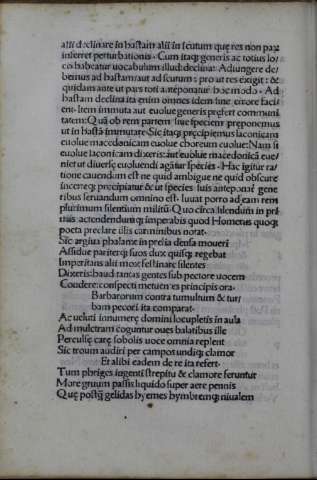 alii declinare in hastam alii in scutum que res non parum
inferret perturbationis. Cum itaq; generis ac totius lo/
co habeatur uocabulum illud: declina: Adiungere de/
bemus ad hastam: aut ad scutum: pro ut res exigit: &
quidam ante ut pars toti anteponatur hac modo. Ad
hastam declina ita enim omnes idem sine errore faci/
ent. Item immuta aut euolue generis prefert communi
tatem: Quā ob rem partem siue speciem preponemus
ut in hastā immutare. Sic itaq; precipiemus laconicam
euolue macedonicam euolue choreum euolue: Nam si
euolue laconicam dixeris: aut euolue macedonicā eue/
niet ut diuerse euoluendi agātur species. Hac igitur ra/
tione cauendum est ne quid ambigue ne quid obscure
precipiatur & ut species suis anteponāt gene
ribus seruandum omnino est. Iuuat porro ad eam rem
plurimum silentium militū. Quo circa silendum in pri/
mis actendendumq; imperabis quod Homerus quoq;
poeta preclare illis carminibus notat.
Sic argiua phalanx in prelia densa moueri
Assidue pariterq; suos dux quisq; regebat
Imperitans alii mox festinare silentes
Dixeris: haud tantas gentes sub pectore uocem
Condere: conspecti metuentes principis ora.
Barbarorum contra tumultum & tur/
bam pecori ita comparat.
Ac ueluti innumere domini locupletis in aula
Ad mulctram coguntur oues balatibus ille
Perculse care sobolis uoce omnia replent
Sic troum audiri per campos undiq; clamor
Et alibi eadem de re ita refert.
Tum phriges ingenti strepitu & clamore feruntur
More gruum passis liquido super aere pennis
Que postq̄ gelidas hyemes hymbremq; niualem